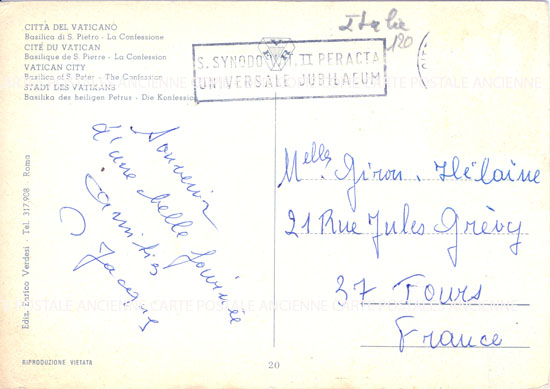 CITTÀ DEL VATICANO
Basilica di S. Pietro - La Confessione
CITÉ DU VATICAN
Basilique de S. Pierre - La Confession
VATICAN CITY
Basilica of S. Peter - The Confession
STADT DES VATIKANS
Basilika des heiligen Petrus - Die Konfession
Italie
120
S. SYNODO VAT. II PERACTA
UNIVERSALE JUBILAEUM
Souvenir
d'une belle journée
Amitiés
Jacques
Melles Giron. Hélaine
21 Rue Jules Grévy
37 Tours
France
Ediz. Enrico Verdesi - Tel. 317.908 - Roma
CARTE POSTALE ANCIENNE CARTE POSTALE ANCIENNE
RIPRODUZIONE VIETATA
20